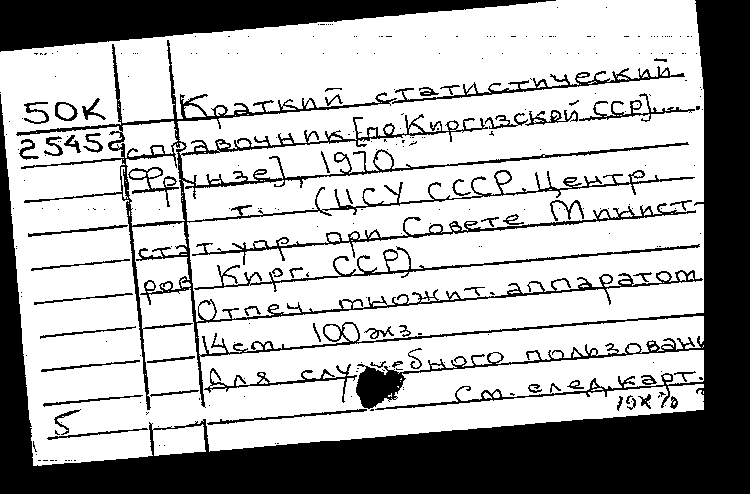 50К Краткий статистический
25452 справочник [по Киргизской ССР]....
[Фрунзе], 1970.
т. (ЦСУ СССР. Центр.
стат. упр. при Совете Минист-
ров Кирг. ССР).
Отпеч. множит. аппаратом
14см. 100экз.
Для служебного пользован
См. след. карт.
5